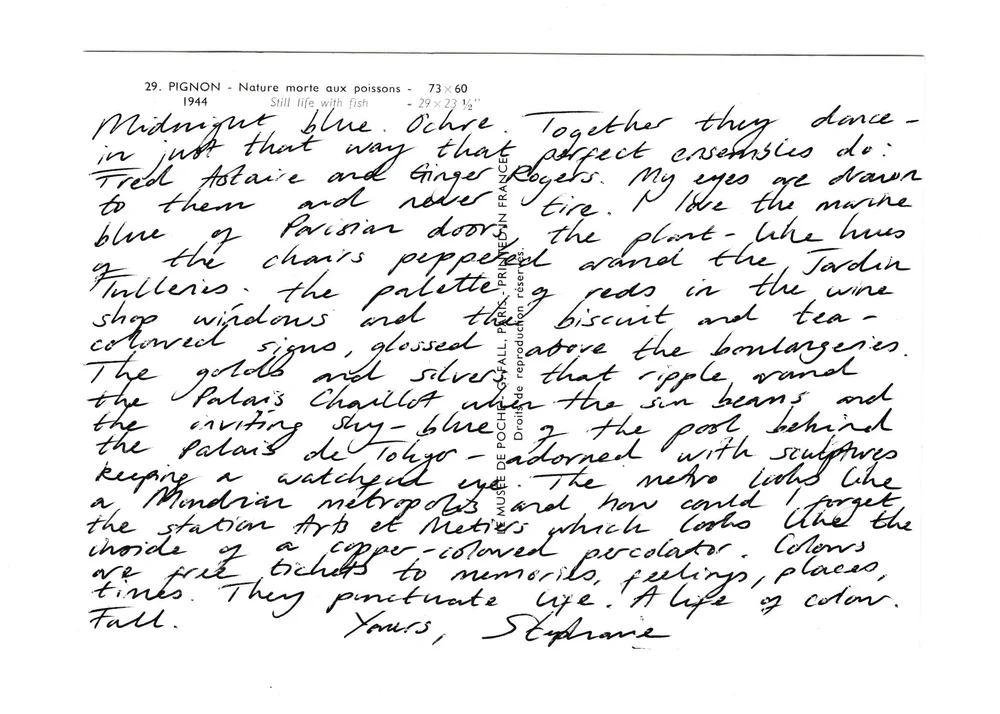 29. PIGNON - Nature morte aux poissons - 73 × 60
1944 Still life with fish - 29 × 23 ½"
Midnight blue. Ochre. Together they dance -
in just that way that perfect ensembles do:
Fred Astaire and Ginger Rogers. My eyes are drawn
to them and never tire. I love the marine
blue of Parisian doors, the plant-like hues
of the chairs peppered around the Jardin
Tulleries. The palette of reds in the wine
shop windows and the biscuit and tea-
coloured signs, glossed above the boulangeries.
The golds and silvers that ripple around
the Palais Chaillot when the sun beams and
the inviting sky-blue of the pool behind
the Palais de Tokyo - adorned with sculptures
keeping a watchful eye. The metro looks like
a Mondrian métropolis and how could I forget
the station Arts et Metiers which looks like the
inside of a copper-coloured percolator. Colours
are free tickets to memories, feelings, places,
times. They punctuate life. A life of colour.
Full.
Yours, Stephanie
LE MUSÉE DE POCHE - G. FALL, PARIS - PRINTED IN FRANCE
Droits de reproduction réservés.